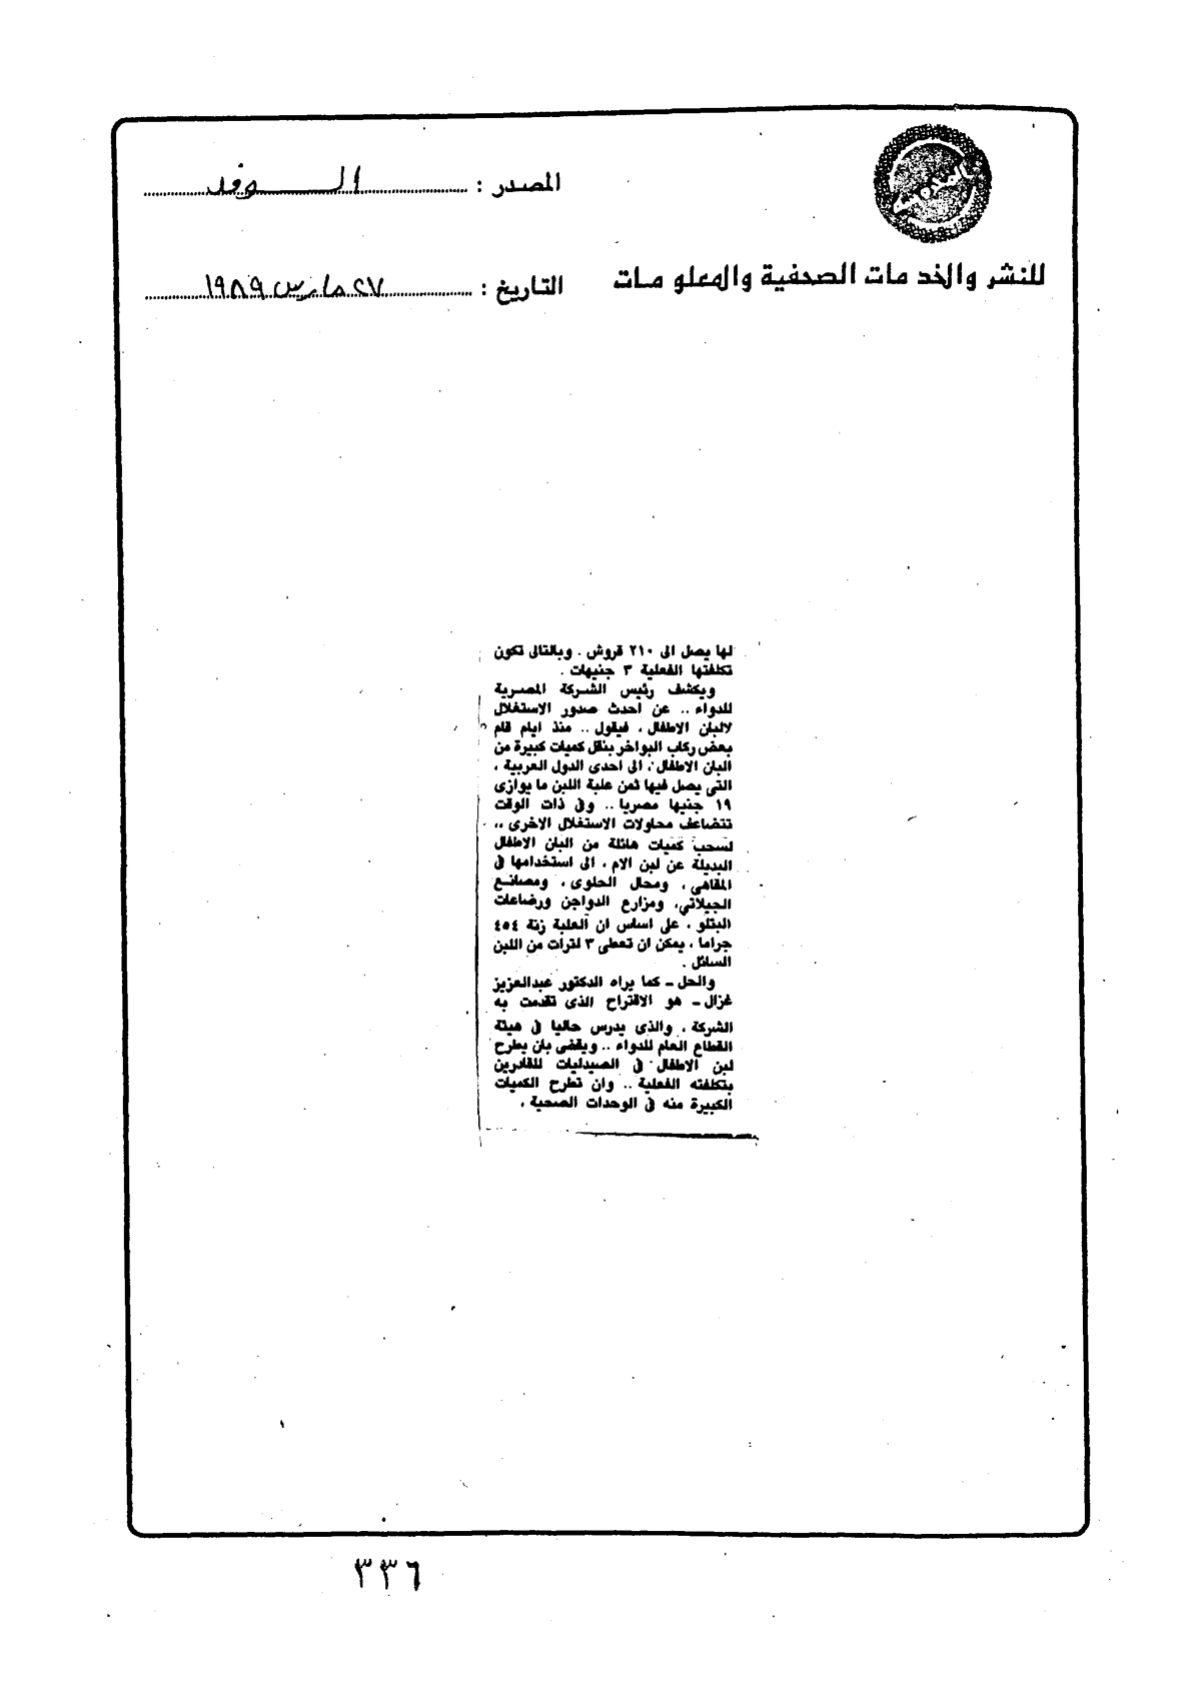 المصدر : الـــوفد
للنشر والخدمات الصحفية والمعلومات
التاريخ : ٢٧ مارس ١٩٨٩
لها يصل الى ٢١٠ قروش . وبالتالى تكون
تكلفتها الفعلية ٣ جنيهات .
ويكشف رئيس الشركة المصرية
للدواء .. عن احدث صور الاستغلال
لالبان الاطفال ، فيقول .. منذ ايام قام
بعض ركاب البواخر بنقل كميات كبيرة من
البان الاطفال ، الى احدى الدول العربية ،
التى يصل فيها ثمن علبة اللبن ما يوازى
١٩ جنيها مصريا .. وفى ذات الوقت
تتضاعف محاولات الاستغلال الاخرى ..
لسحب كميات هائلة من البان الاطفال
البديلة عن لبن الام ، الى استخدامها فى
المقاهى ، ومحال الحلوى ، ومصانع
الجيلاتي، ومزارع الدواجن ورضاعات
البتلو ، على اساس ان العلبة زنة ٤٥٤
جراما ، يمكن ان تعطى ٣ لترات من اللبن
السائل .
والحل ـ كما يراه الدكتور عبدالعزيز
غزال ـ هو الاقتراح الذى تقدمت به
الشركة ، والذى يدرس حاليا فى هيئة
القطاع العام للدواء .. ويقضى بان يطرح
لبن الاطفال فى الصيدليات للقادرين
بتكلفته الفعلية .. وان تطرح الكميات
الكبيرة منه فى الوحدات الصحية .
٣٣٦